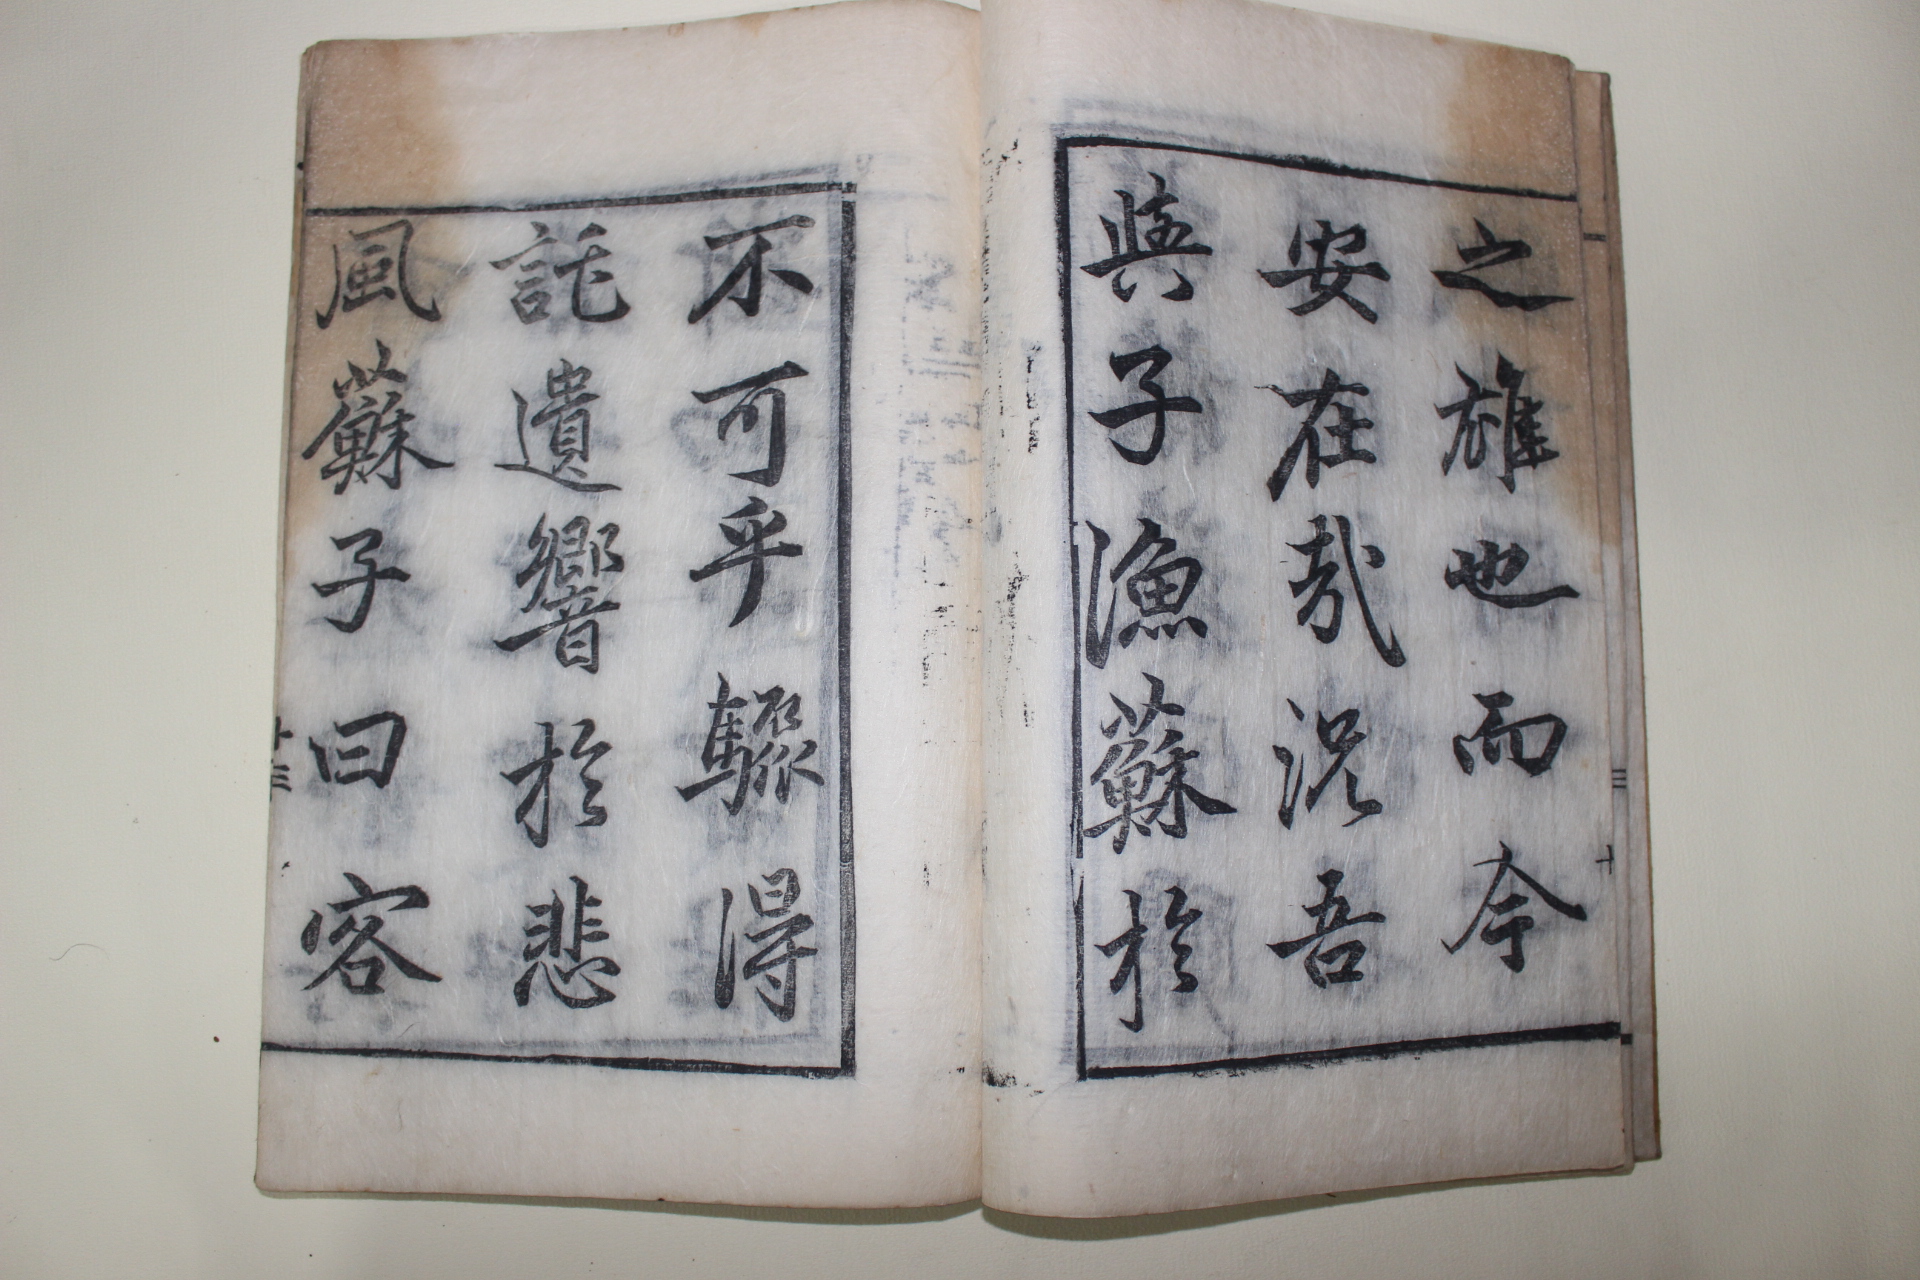 之雄也而今
安在哉況吾
與子漁蘇於
不可乎驟得
託遺響於悲
風蘇子曰客
十三